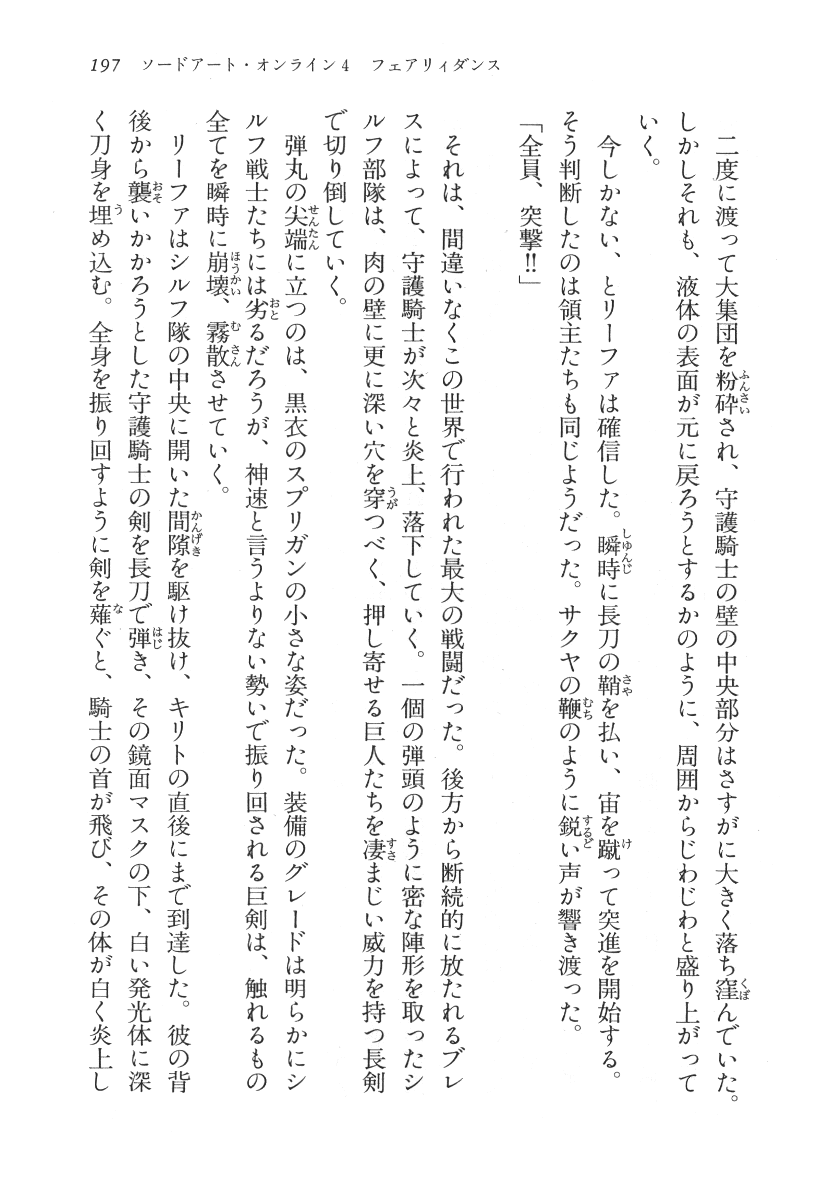 197 ソードアート・オンライン4 フェアリィダンス
二度に渡って大集団を粉砕され、守護騎士の壁の中央部分はさすがに大きく落ち窪んでいた。
しかしそれも、液体の表面が元に戻ろうとするかのように、周囲からじわじわと盛り上がって
いく。
今しかない、とリーファは確信した。瞬時に長刀の鞘を払い、宙を蹴って突進を開始する。
そう判断したのは領主たちも同じようだった。サクヤの鞭のように鋭い声が響き渡った。
「全員、突撃!!」
それは、間違いなくこの世界で行われた最大の戦闘だった。後方から断続的に放たれるブレ
スによって、守護騎士が次々と炎上、落下していく。一個の弾頭のように密な陣形を取ったシ
ルフ部隊は、肉の壁に更に深い穴を穿つべく、押し寄せる巨人たちを凄まじい威力を持つ長剣
で切り倒していく。
弾丸の尖端に立つのは、黒衣のスプリガンの小さな姿だった。装備のグレードは明らかにシ
ルフ戦士たちには劣るだろうが、神速と言うよりない勢いで振り回される巨剣は、触れるもの
全てを瞬時に崩壊、霧散させていく。
リーファはシルフ隊の中央に開いた間隙を駆け抜け、キリトの直後にまで到達した。彼の背
後から襲いかかろうとした守護騎士の剣を長刀で弾き、その鏡面マスクの下、白い発光体に深
く刀身を埋め込む。全身を振り回すように剣を薙ぐと、騎士の首が飛び、その体が白く炎上し